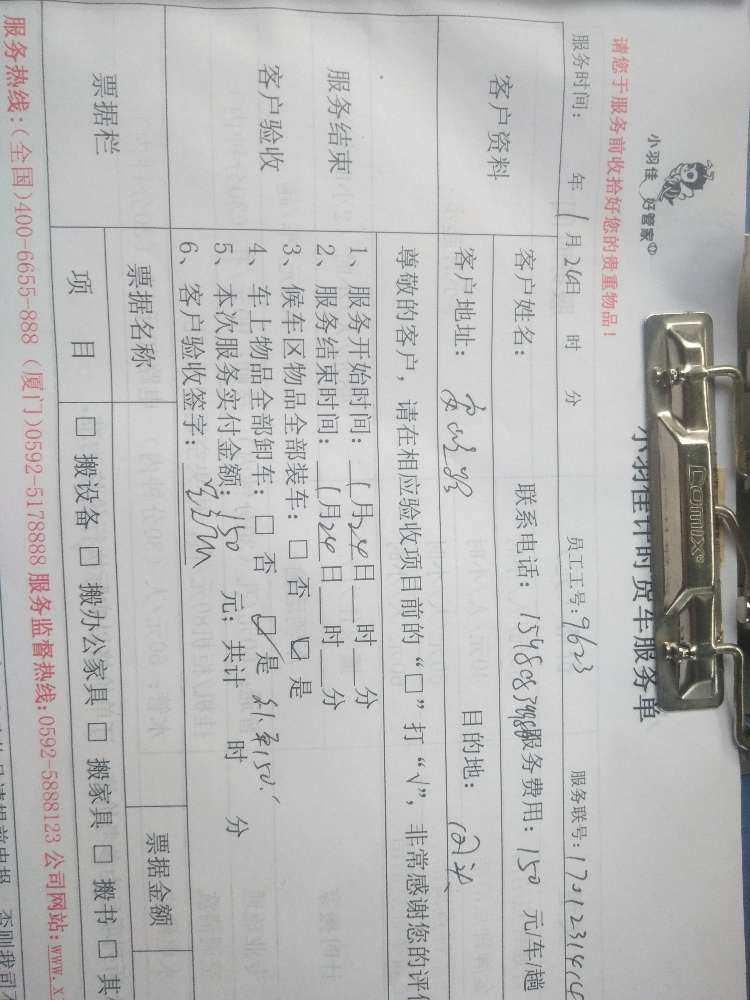 小羽佳 好管家
小羽佳计时货车服务单
请您于服务前收拾好您的贵重物品！
服务时间： 年 1月24日 时 分 员工工号：9623 服务联号：1701231414
客户资料
客户姓名： 联系电话： 服务费用：150 元/车/趟
客户地址： 目的地：
尊敬的客户，请在相应验收项目前的“□”打“√”，非常感谢您的评
服务结束
客户验收
1、服务开始时间：1月24日 时 分
2、服务结束时间：1月24日 时 分
3、候车区物品全部装车：□ 否 ☑ 是
4、车上物品全部卸车：□ 否 ☑ 是 150
5、本次服务实付金额：150 元；共计 时 分
6、客户验收签字：
票据栏 票据名称 票据金额
项 目 □ 搬设备 □ 搬办公家具 □ 搬家具 □ 搬书 □ 其
服务热线：（全国）400-6655-888 （厦门）0592-5178888 服务监督热线：0592-5888123 公司网站：www.x
Comix